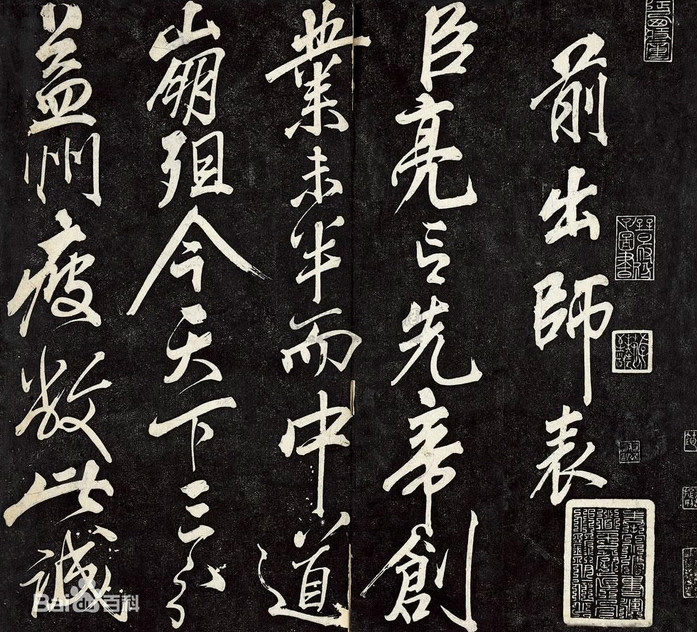 前出師表
臣亮言先帝創
業未半而中道
崩殂今天下三分
益州疲敝此誠
Bai百科